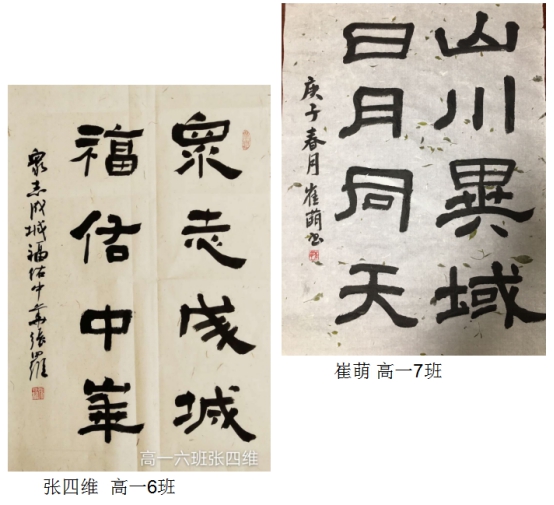 眾志成城
福佑中華
眾志成城福佑中華張
高一六班张四维
张四维 高一6班
山川異域
日月同天
庚子春月崔萌书
崔萌 高一7班